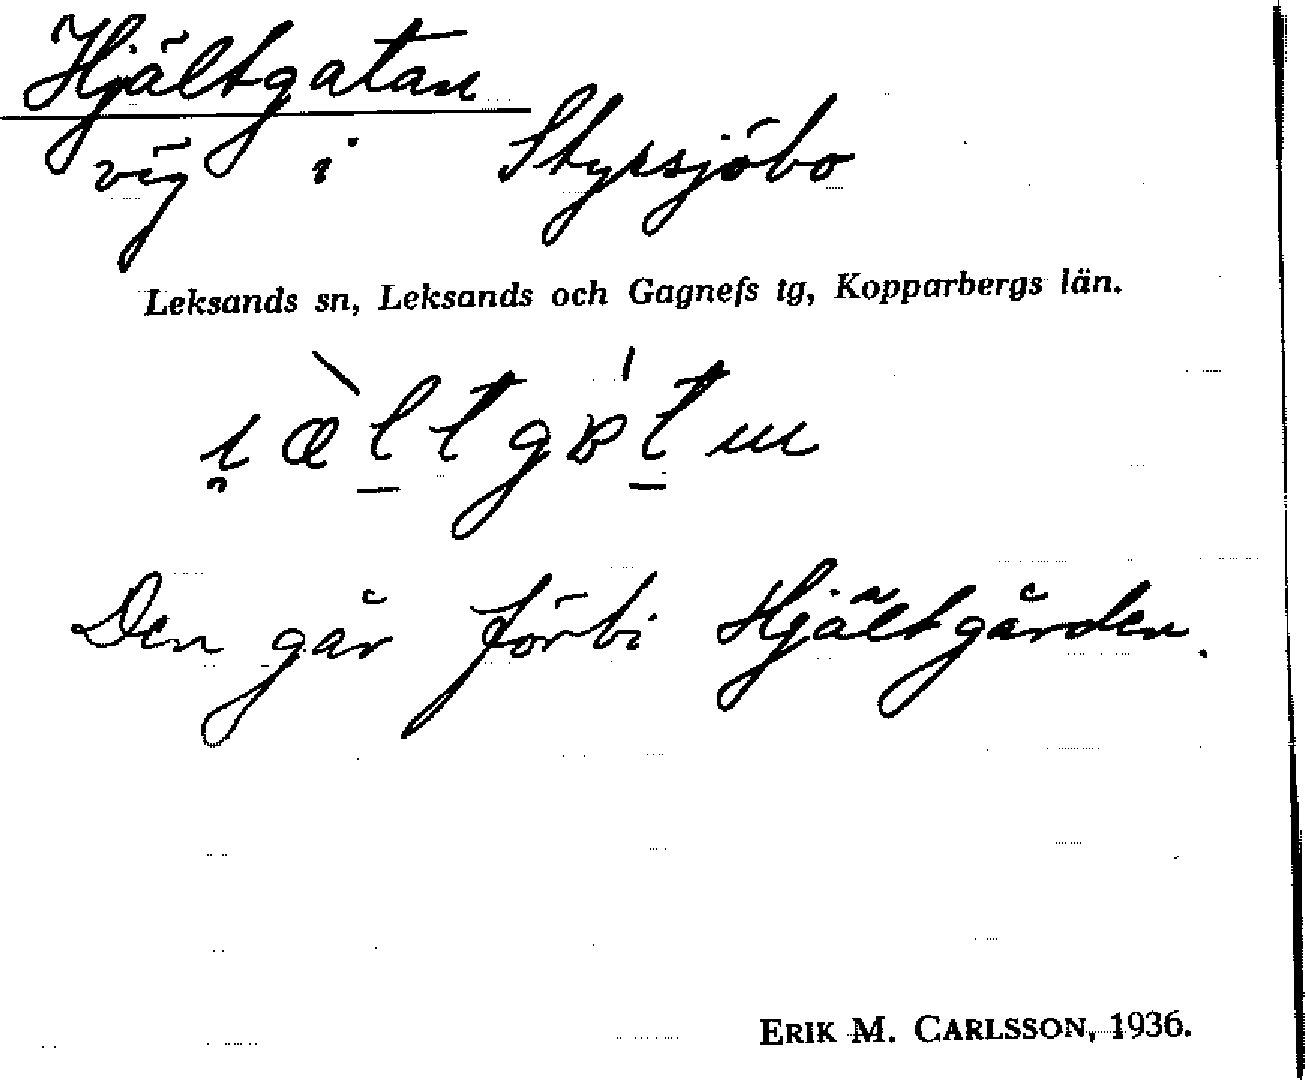 Hjältgatan
väg i Styrsjöbo
Leksands sn, Leksands och Gagnefs tg, Kopparbergs län.
Den går förbi Hjältgården.
ERIK M. CARLSSON, 1936.